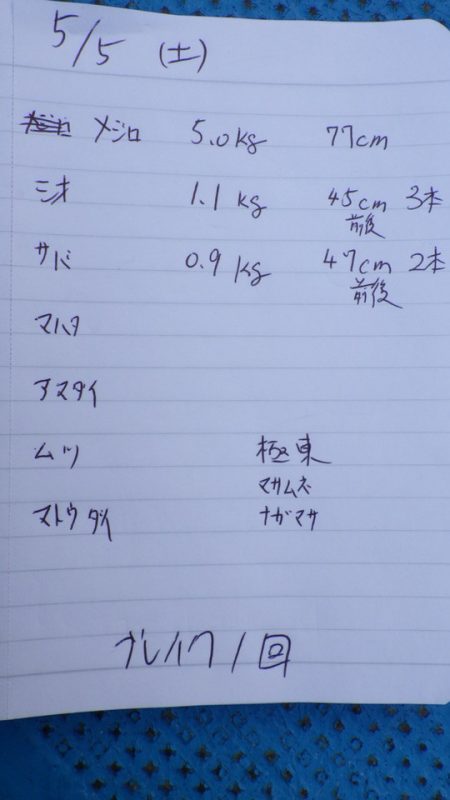 5/5 (土)
メジロ 5.0kg 77cm
ミオ 1.1kg 45cm前後 3本
サバ 0.9kg 47cm前後 2本
マハタ
アマダイ
ムツ 極東
マサムネ
マトウダイ ナガマサ
ブレイク1回